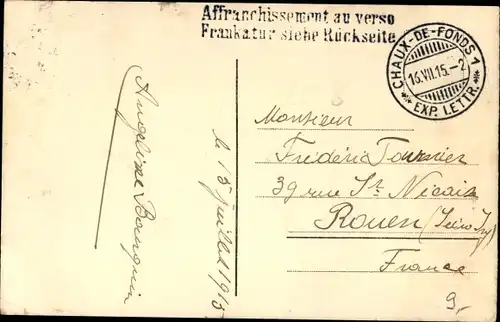 Affranchissement au verso
Frankatur siehe Rückseite
CHAUX-DE-FONDS 1
16.VII.15.-2
EXP. LETTR.
Monsieur
Frédéric Tournier
39 rue St. Nicaise
Rouen
France
9,-
le 15 juillet 1915
Angeline